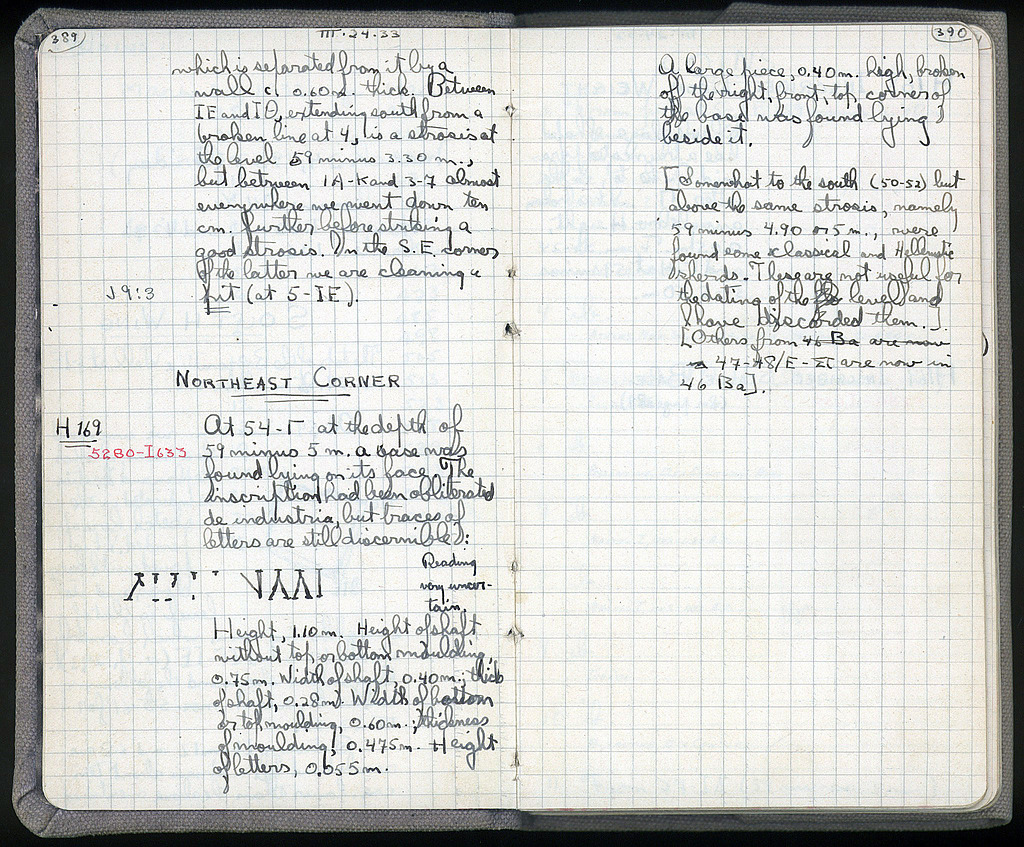 389
III.24.33
which is separated from it by a
wall c. 0.60 m. thick. Between
ΙΕ and ΙΘ, extending south from a
broken line at 4, is a strosis at
the level 59 minus 3.30 m.,
but between ΙΑ-Κ and 3-7 almost
everywhere we went down ten
cm. further before striking a
good strosis. In the S.E. corner
of the latter we are cleaning a
J 9:3
pit (at 5-ΙΕ).
NORTHEAST CORNER
H 169
5280-I633
At 54-Γ at the depth of
59 minus 5 m. a base was
found lying on its face. The
inscription had been obliterated
de industria, but traces of
letters are still discernible):
Reading
very uncer-
tain.
Height, 1.10 m. Height of shaft
without top or bottom moulding,
0.75 m. Width of shaft, 0.40 m.; thick
of shaft, 0.28 m. Width of bottom
or top moulding, 0.60 m.; thickness
of moulding, 0.475 m. Height
of letters, 0.055 m.
390
A large piece, 0.40 m. high, broken
off the right, front, top, corner of
the base was found lying
beside it.
[Somewhat to the south (50-52) but
above the same strosis, namely
59 minus 4.90 or 5 m., were
found some classical and Hellenistic
sherds. These are not useful for
the dating of the level and
I have discarded them.].
[Others from 46 Ba are now
47-48/Ε-ΣΤ are now in
46 Ba].